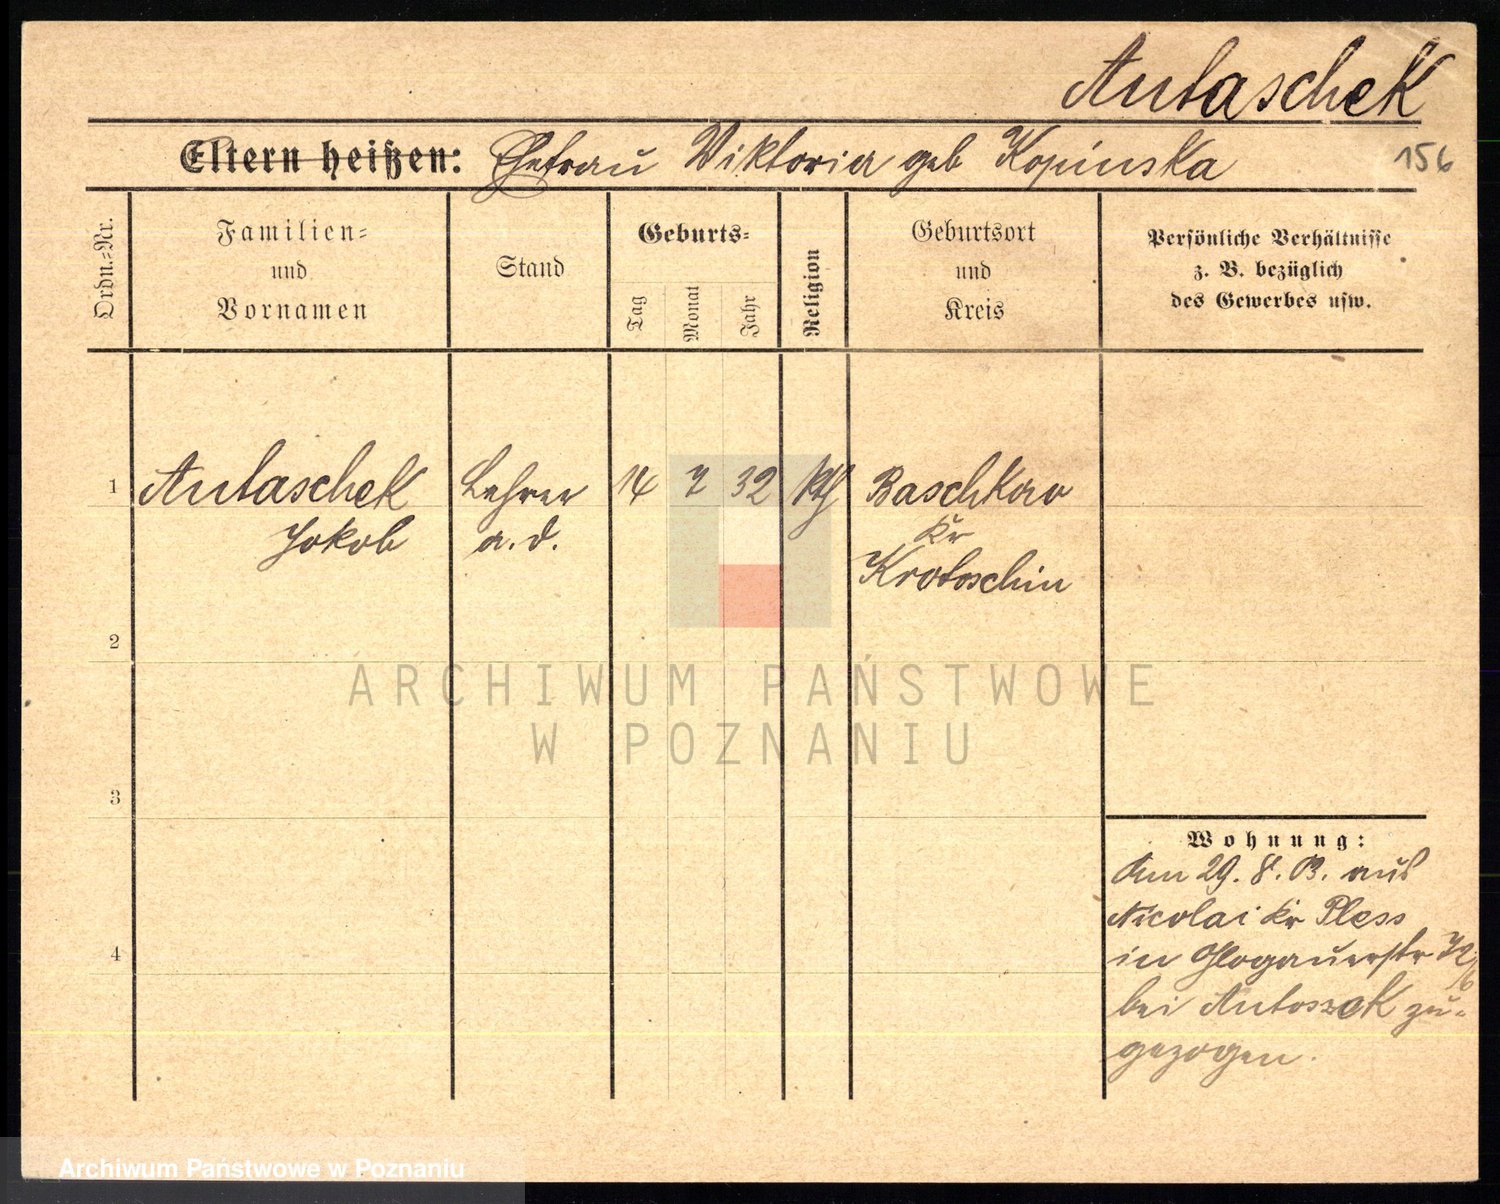 Antaschek
Eltern heißen: Ehefrau Viktoria geb Kopinska
156
Ordn.-Nr.
Familien-
und
Vornamen
Stand
Geburts-
Tag
Monat
Jahr
Religion
Geburtsort
und
Kreis
Persönliche Verhältnisse
z. B. bezüglich
des Gewerbes usw.
1
Antaschek
Jakob
Lehrer
a. d.
14
7
32
kth
Baschkow
Kr
Krotoschin
2
3
4
Wohnung:
Am 29. 8. 03. aus
Nicolai Kr Pless
in Glogauerstr
bei Antoszek zu-
gezogen.
ARCHIWUM PAŃSTWOWE
W POZNANIU
Archiwum Państwowe w Poznaniu